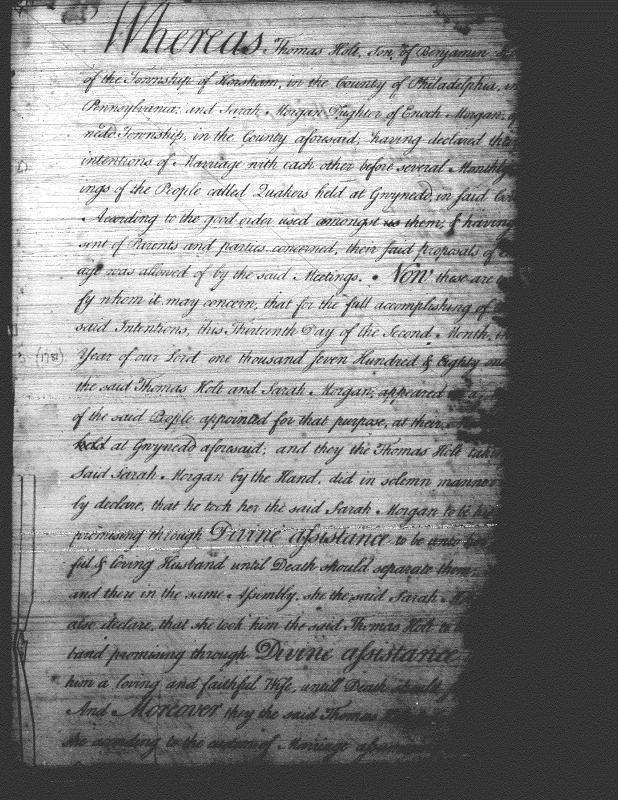 Whereas Thomas Holt, Son, of Benjamin
of the Township of Horsham, in the County of Philadelphia, in
Pennsylvania; and Sarah Morgan Dughter of Enoch Morgan, of
nedd Township, in the County aforesaid, having declared their
intentions of Marriage with each other before several Monthly
ings of the People called Quakers held at Gwynedd, in said
According to the good order used amongst us them, & having
sent of Parents and parties concerned, their said proposals of
age was allowed of by the said Meetings. Now these are
fy whom it may concern, that for the full accomplishing of
said Intentions, this Thirteenth Day of the Second Month, in
(1781) Year of our Lord one thousand Seven Hundred & Eighty one
the said Thomas Holt and Sarah Morgan, appeared
of the said People appointed for that purpose, at their
held at Gwynedd aforesaid; and they the Thomas Holt taking
said Sarah Morgan by the Hand, did in solemn manner
by declare, that he took her the said Sarah Morgan to be his
promising through Divine assistance to be unto her
ful & loving Husband until Death should separate them;
and there in the same Assembly, she the said Sarah
also declare, that she took him the said Thomas Holt to
band promising through Divine assistance
him a loving and faithful Wife, untill Death should
And Moreover they the said Thomas
she acording to the custom of Marriage assuming